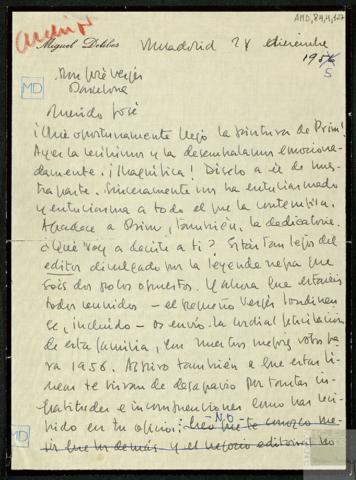 AMD, 84, 4, 127
archivo
Miguel Delibes
Madrid 28 diciembre
1955
MD
Don José Vergés
Barcelona
Querido José
¡Qué oportunamente llegó la pintura de Prim!
Ayer la recibimos y la desembalamos emociona-
damente. ¡Magnífica! Díselo a él de nues-
tra parte. Sinceramente nos ha entusiasmado
y entusiasma a todo el que la contempla.
Agradece a Prim, también, la dedicatoria.
¿Qué voy a decirte a ti? Estás tan lejos del
editor divulgado por la leyenda negra que
sois dos polos opuestos. Y ahora que estaréis
todos reunidos — el pequeño Vergés londinen-
se, incluido — os envío la cordial felicitación
de esta familia, con nuestros mejores votos pa-
ra 1956. Aspiro también a que estas lí-
neas te sirvan de desagravio por tantas in-
gratitudes e incomprensiones como has reci-
bido en tu oficio.
-NO-
Creo que te conozco me-
jor que los demás y el negocio editorial no
MD